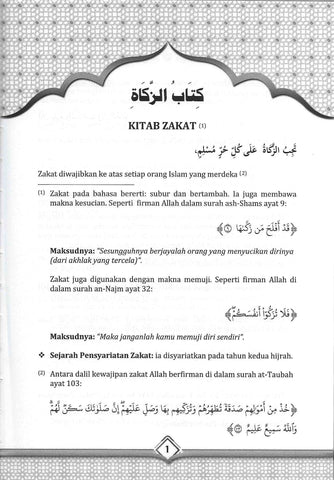 كِتَابُ الزَّكَاةِ
KITAB ZAKAT (1)
تَجِبُ الزَّكَاةُ عَلَى كُلِّ حُرٍّ مُسْلِمٍ،
Zakat diwajibkan ke atas setiap orang Islam yang merdeka (2)
(1) Zakat pada bahasa bererti: subur dan bertambah. Ia juga membawa
makna kesucian. Seperti firman Allah dalam surah ash-Shams ayat 9:
﴿قَدْ أَفْلَحَ مَن زَكَّىٰهَا ٩﴾
Maksudnya: “Sesungguhnya berjayalah orang yang menyucikan dirinya
(dari akhlak yang tercela)”.
Zakat juga digunakan dengan makna memuji. Seperti firman Allah di
dalam surah an-Najm ayat 32:
﴿فَلَا تُزَكُّوٓا۟ أَنفُسَكُمْ﴾
Maksudnya: “Maka janganlah kamu memuji diri sendiri”.
❖ Sejarah Pensyariatan Zakat: ia disyariatkan pada tahun kedua hijrah.
(2) Antara dalil kewajipan zakat Allah berfirman di dalam surah at-Taubah
ayat 103:
﴿خُذْ مِنْ أَمْوَٰلِهِمْ صَدَقَةً تُطَهِّرُهُمْ وَتُزَكِّيهِم بِهَا وَصَلِّ عَلَيْهِمْ إِنَّ صَلَوٰتَكَ سَكَنٌ لَّهُمْ
وَٱللَّهُ سَمِيعٌ عَلِيمٌ ١٠٣﴾
1